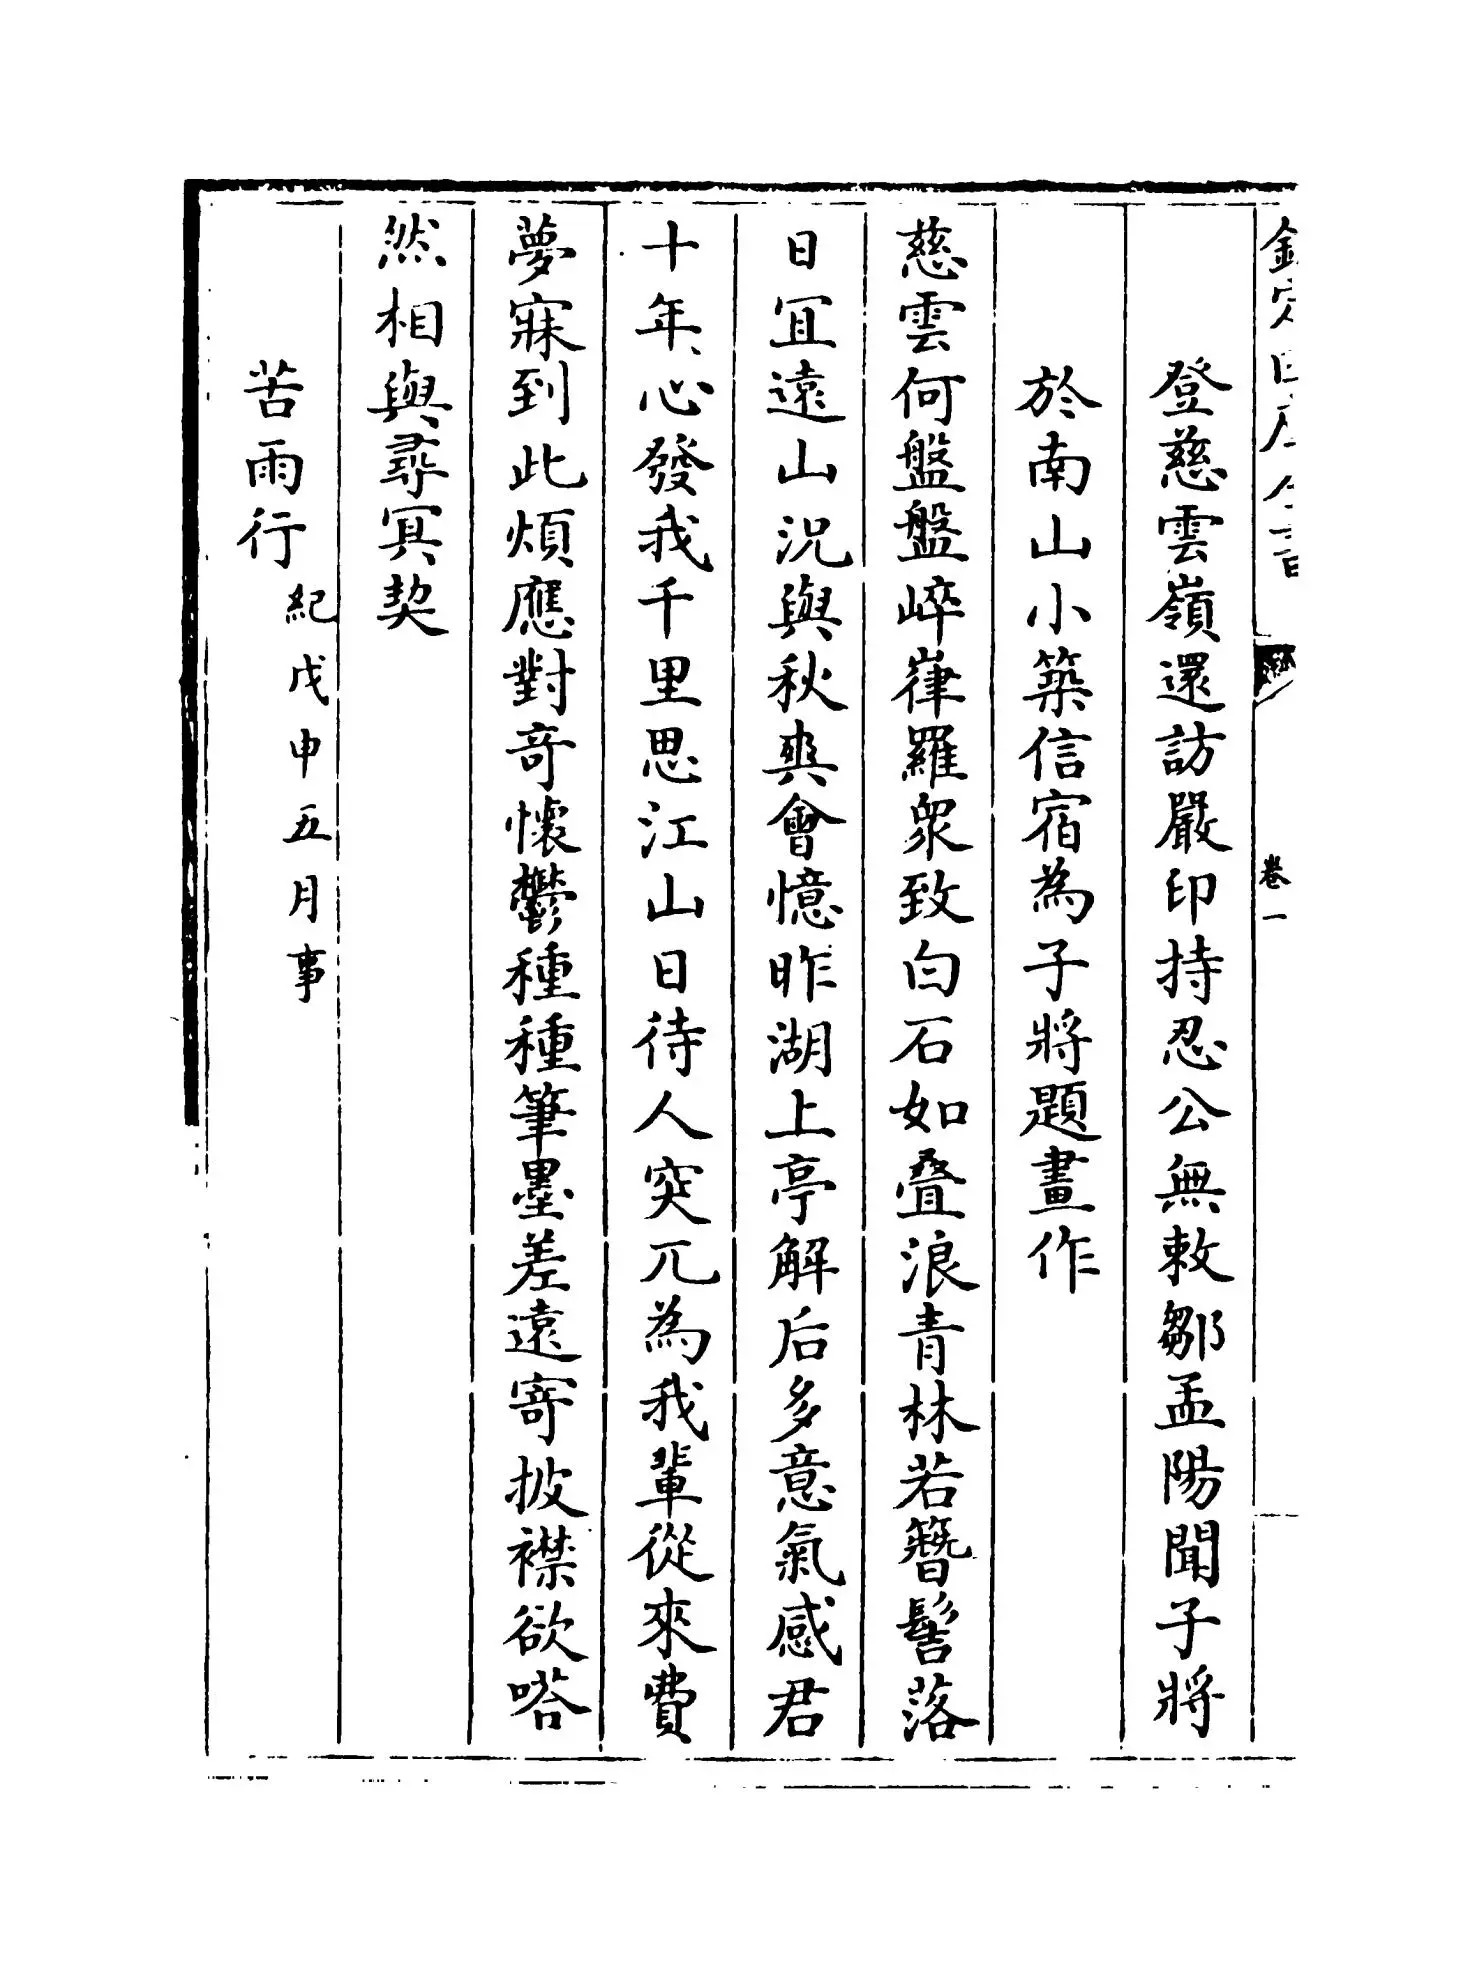 欽定四庫全書 卷一
登慈雲嶺還訪嚴印持忍公無敕鄒孟陽聞子將
於南山小築信宿為子將題畫作
慈雲何盤盤崪嵂羅衆致白石如叠浪青林若簪髻落
日冝遠山況與秋爽會憶昨湖上亭解后多意氣感君
十年心發我千里思江山日待人突兀為我輩從來費
夢寐到此煩應對竒懷鬱種種筆墨差遠寄披襟欲嗒
然相與尋冥契
苦雨行 紀戊申五月事